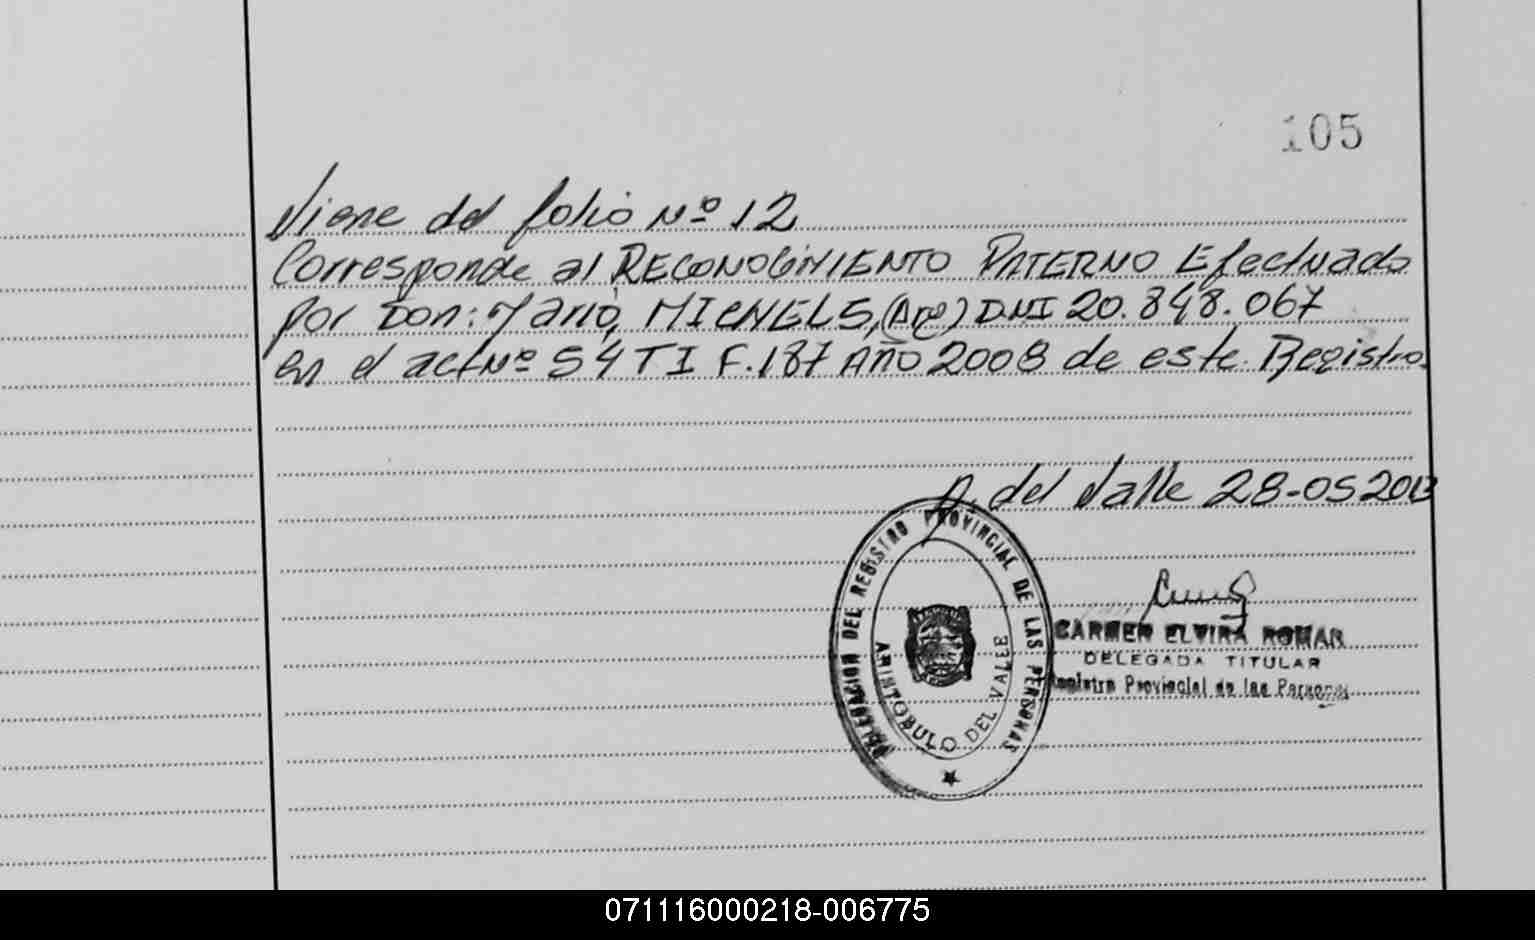 105
Viene del folio Nº 12
Corresponde al RECONOCIMIENTO PATERNO Efectuado
por Don: Mario, MICHELS, (Arg) DNI 20.848.067
en el act Nº 54 TI F.187 AÑO 2008 de este Registro.
A. del Valle 28-05 2013
DELEGACION DEL REGISTRO PROVINCIAL DE LAS PERSONAS
ARISTOBULO DEL VALLE
CARMEN ELVIRA ROMAN
DELEGADA TITULAR
Registro Provincial de las Personas
071116000218-006775